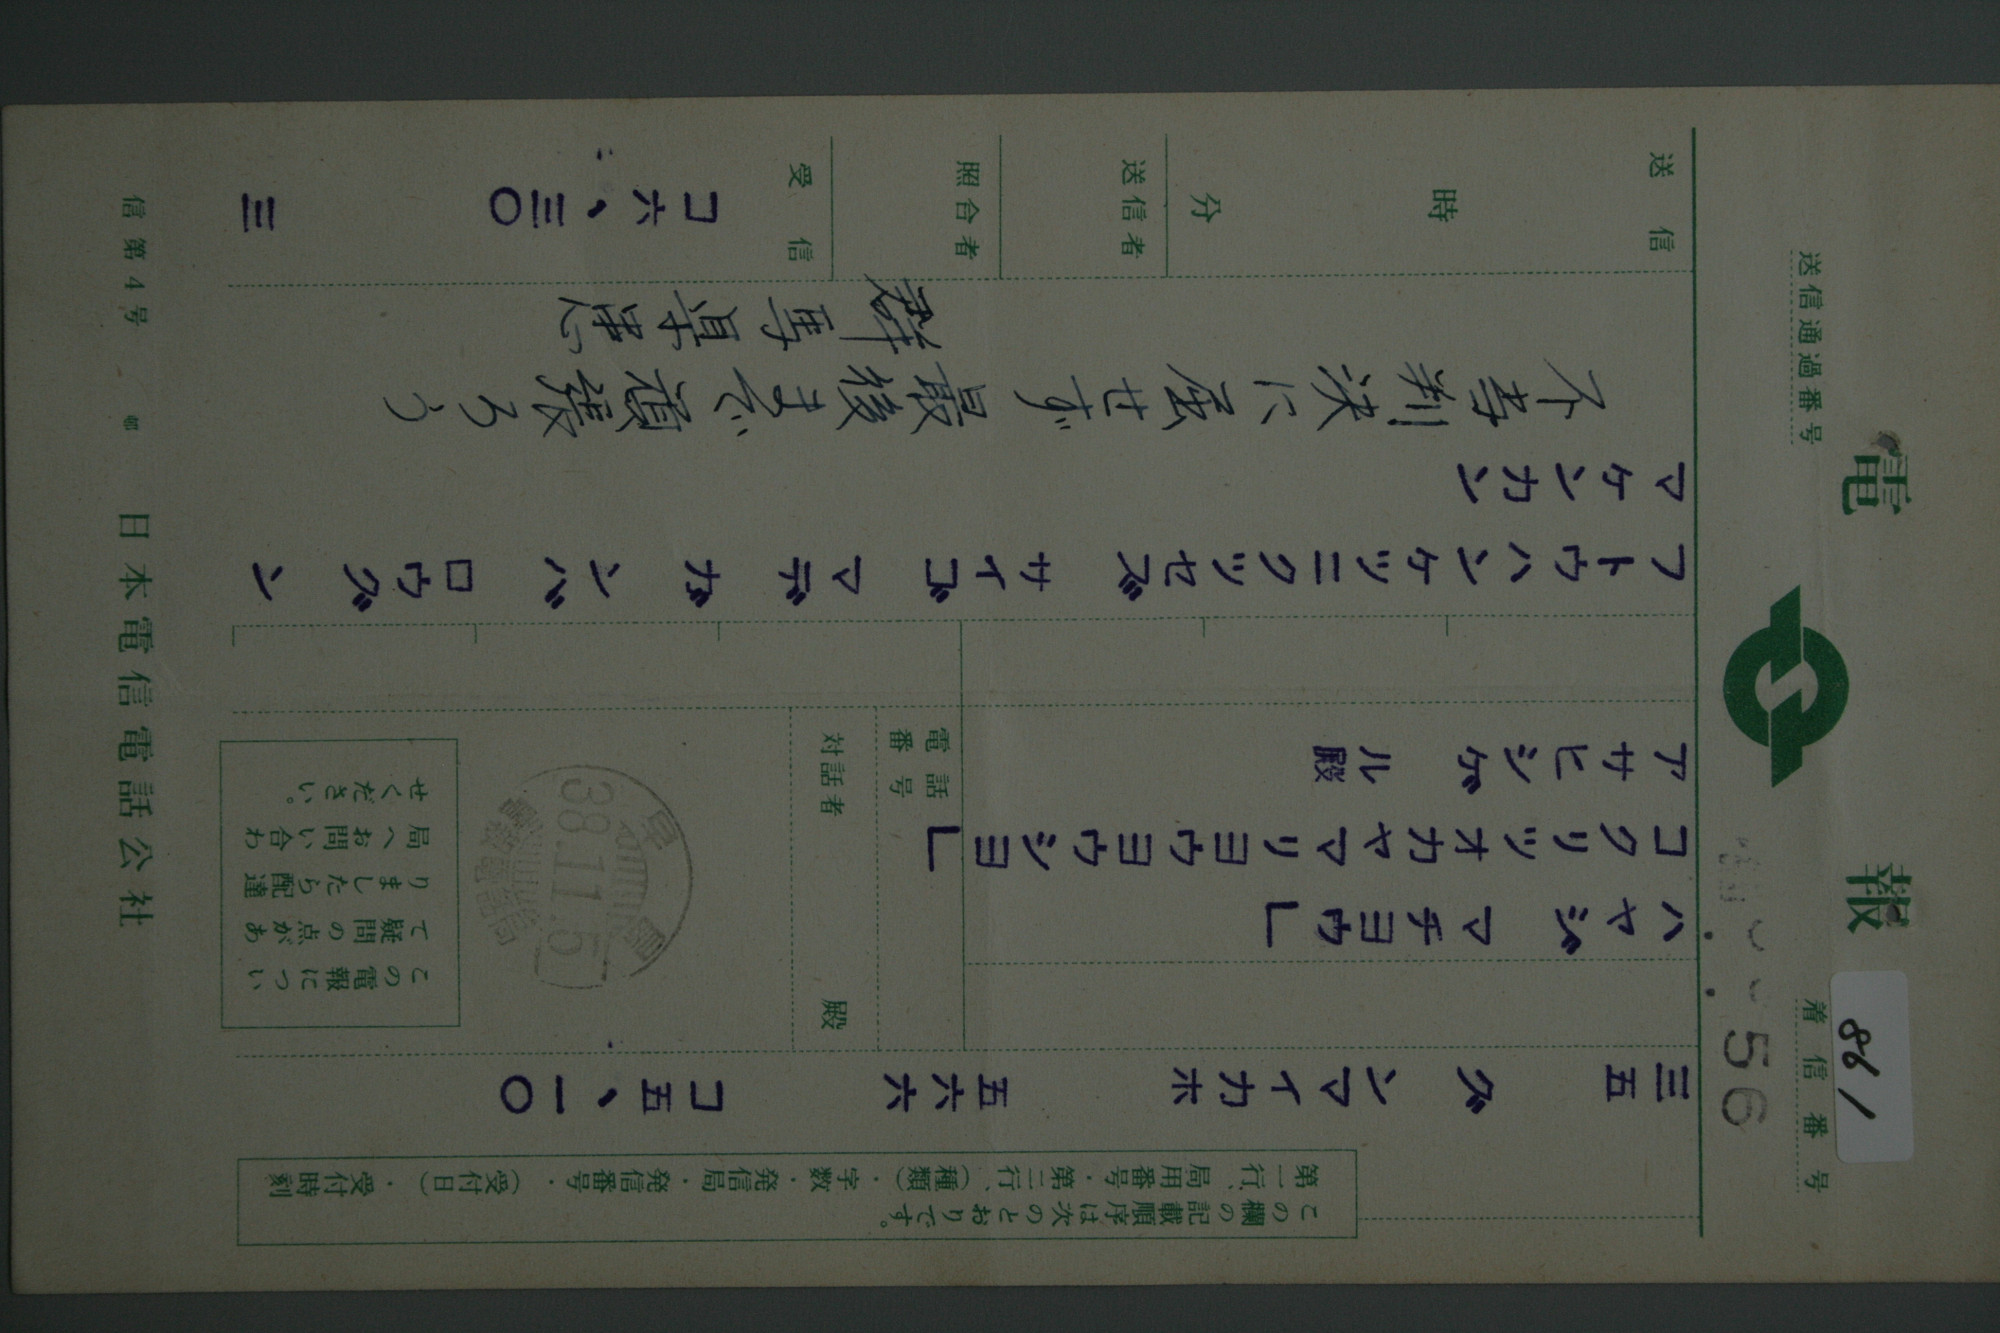 電報
送信通過番号
着信番号
861
56
この欄の記載順序は次のとおりです。
第一行、局用番号・第二行、(種類)・字数・発信局・発信番号・(受付日)・受付時刻
三五 グ ンマイカホ 五六六 コ五、一〇
ハヤジ マチヨウ」
コクリツオカヤマリヨウヨウシヨ」
アサヒシゲ ル殿
電話番号
対話者 殿
早島
38.11.5
この電報につい
て疑問の点があ
りましたら配達
局へお問い合わ
せください。
フトウハンケツニクツセズ サイゴ マデ ガ ンバ ロウグ ン
マケンカン
不当判決に屈せず最後まで頑張ろう
群馬県患
送信 時 分
送信者
照合者
受信 コ六、三〇 三
信第4号
日本電信電話公社